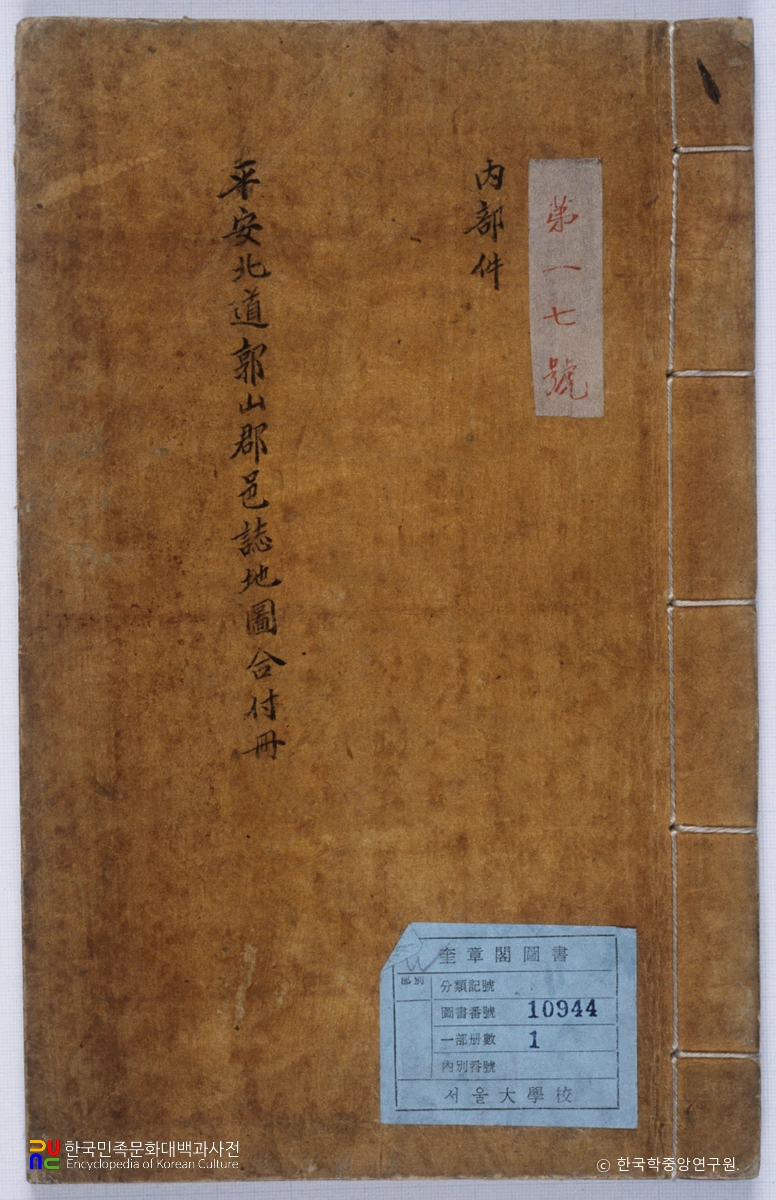 第一七號
內部件
平安北道郭山郡邑誌地圖合付冊
奎章閣圖書
部別
分類記號
圖書番號 10944
一部册數 1
內別番號
서울大學校
한국민족문화대백과사전
Encyclopedia of Korean Culture
© 한국학중앙연구원